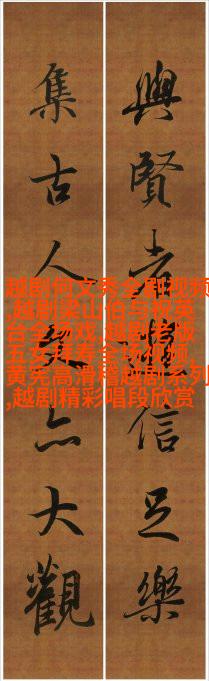 與賢者信足樂
集古人亦大觀
越剧何文秀全剧视频
,越剧梁山伯与祝英
台全场戏,越剧老版
五女拜寿全场视频,
黄宪高滑稽越剧系列
,越剧精彩唱段欣赏